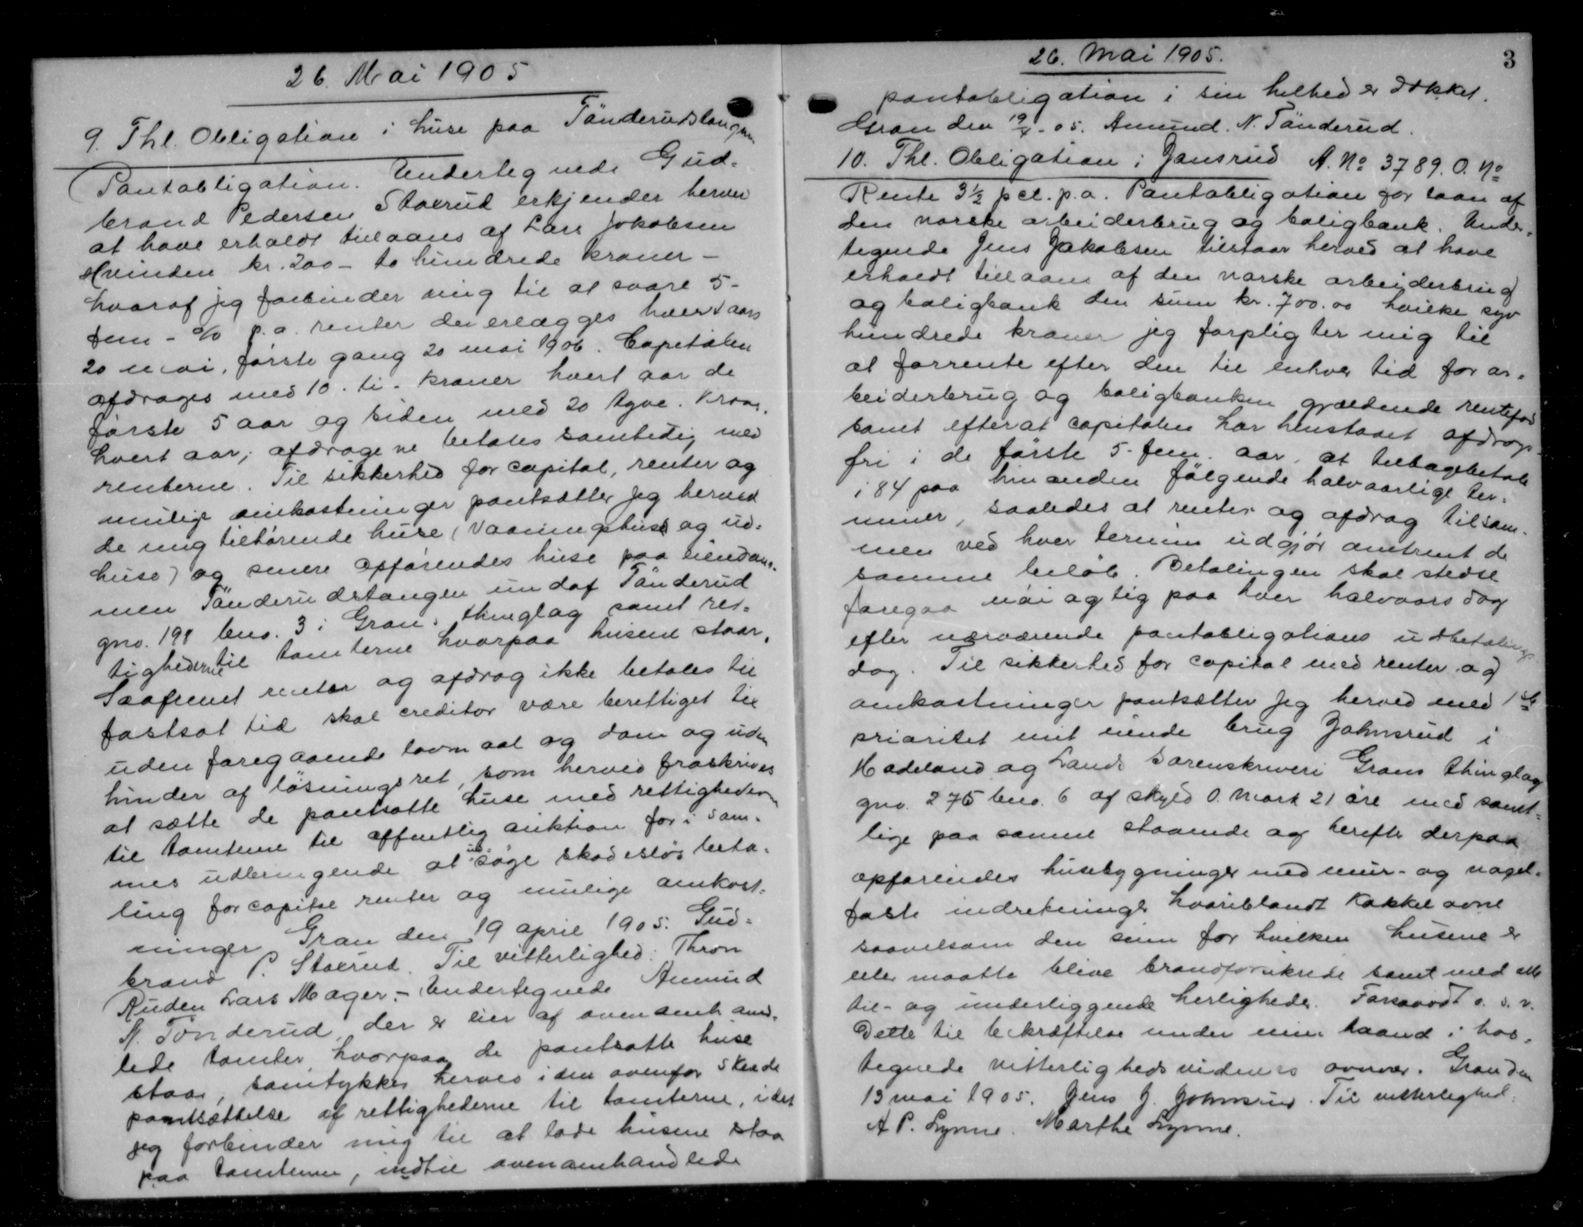 26 Mai 1905
9. Thl. Obligation i huse paa Tönderudstangen
Pantobligation. Undertegnede Gud-
brand Pedersen Staerud erkjender herved
at have erholdt tillaans af Lars Jokobsen
Hvinden kr. 200 - to hundrede kroner -
hvoraf jeg forbinder mig til at svare 5-
fem - % p.a. renter der erlægges hvert aars
20 mai, første gang 20 mai 1906. Capitalen
afdrages med 10 - ti - kroner hvert aar de
første 5 aar og siden med 20 tyve. kron.
hvert aar; afdragene betales samtidig med
renterne. Til sikkerhed for capital, renter og
mulige omkostninger pantsætter jeg herved
de mig tilhørende huse (vaaningshus og ud-
huse) og senere opførendes huse paa eiendom-
men Tönderudstangen undaf Tönderud
gno. 199 bno. 3 i Gran thinglag samt ret-
tighederne til tomterne hvorpaa husene staar.
Saafremt renter og afdrag ikke betales til
fastsat tid skal creditor være berettiget til
uden foregaaende lovmaal og dom og uden
hinder af løsningsret, som herved fraskrives
at sætte de pantsatte huse med rettighederne
til tomterne til offentlig auktion for i sam-
mes udbringende at søge skadesløs beta-
ling for capital renter og mulige omkost-
ninger. Gran den 19 april 1905. Gud-
brand P. Staerud. Til vitterlighed: Thron
Ruden Lars Mager. - Undertegnede Amund
N. Tönderud, der er eier af ovenomhand-
lede tomter, hvorpaa de pantsatte huse
staar, samtykker herved i den ovenfor skede
pantsættelse af rettighederne til tomterne, idet
jeg forbinder mig til at lade husene staa
paa tomterne, indtil ovenomhandlede
26. Mai 1905.
3
pantobligation i sin helhed er dækket.
Gran den 19/4 - 05. Amund. N. Tönderud.
10. Thl. Obligation i Jansrud A. No 3789. O. No
Rente 3½ pct. p.a. Pantobligation for laan af
den norske arbeiderbrug og boligbank. Under-
tegnede Jens Jakobsen tilstaar herved at have
erholdt tillaans af den norske arbeiderbrug
og boligbank den sum kr. 700.00 hvilke syv
hundrede kroner jeg forpligter mig til
at forrente efter den til enhver tid for ar-
beiderbrug og boligbanken gjældende rentefod
samt efterat capitalen har henstaaet afdrags-
fri i de første 5 - fem - aar, at tilbagebetale
i 84 paa hinanden følgende halvaarlige ter-
miner, saaledes at renter og afdrag tilsam-
men ved hver termin udgjør omtrent de
samme beløb. Betalingen skal stedse
foregaa nøiagtig paa hver halvaarsdag
efter nærværende pantobligations udbetalings
dag. Til sikkerhed for capital med renter og
omkostninger pantsætter jeg herved med 1ste
prioritet mit eiende brug Johnsrud i
Hadeland og Lands Sorenskriveri Grans thinglag
gno. 275 bno. 6 af skyld 0. mark 21 øre med samt-
lige paa samme staaende og herefter derpaa
opførendes husebygninger med mur- og nagel-
faste indretninger hvoriblandt kakkelovne
saavelsom den sum for hvilken husene er
eller maatte blive brandforsikrede samt med alle
til- og underliggende herligheder. Forsøvrigt o. s. v.
Dette til bekræftelse under min haand i hos-
tegnede vitterlighedsvidners overvær. Gran den
13 mai 1905. Jens J. Johnsrud. Til vitterlighed:
A P. Lynne. Marthe Lynne.